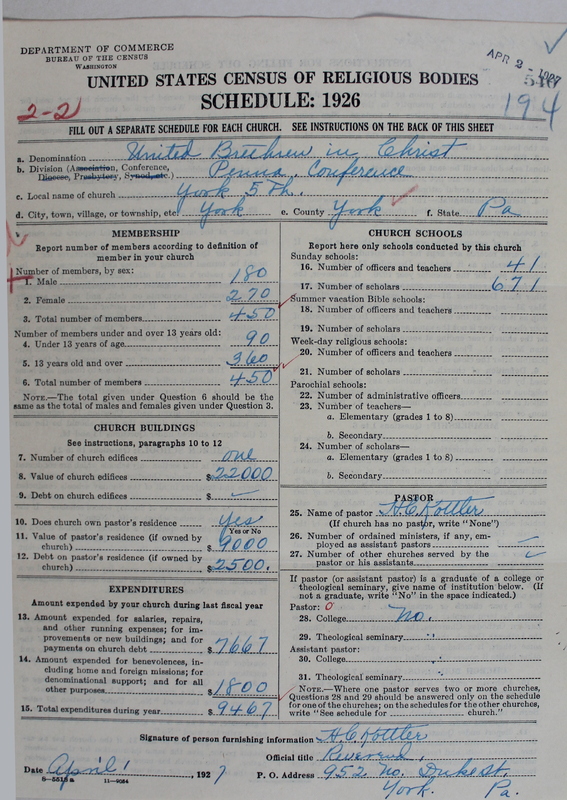 DEPARTMENT OF COMMERCE
BUREAU OF THE CENSUS
WASHINGTON
APR 2 - 1927
UNITED STATES CENSUS OF RELIGIOUS BODIES
SCHEDULE: 1926
2-2
194
FILL OUT A SEPARATE SCHEDULE FOR EACH CHURCH. SEE INSTRUCTIONS ON THE BACK OF THIS SHEET
a. Denomination United Brethren in Christ
b. Division (Association, Conference, Diocese, Presbytery, Synod, etc.) Penna. Conference
c. Local name of church York 5th.
d. City, town, village, or township, etc York e. County York f. State Pa
MEMBERSHIP
Report number of members according to definition of member in your church
Number of members, by sex:
1. Male 180
2. Female 270
3. Total number of members 450
Number of members under and over 13 years old:
4. Under 13 years of age 90
5. 13 years old and over 360
6. Total number of members 450
NOTE.—The total given under Question 6 should be the same as the total of males and females given under Question 3.
CHURCH BUILDINGS
See instructions, paragraphs 10 to 12
7. Number of church edifices one
8. Value of church edifices $22000
9. Debt on church edifices $
10. Does church own pastor's residence Yes
Yes or No
11. Value of pastor's residence (if owned by church) $9000
12. Debt on pastor's residence (if owned by church) $2500.
EXPENDITURES
Amount expended by your church during last fiscal year
13. Amount expended for salaries, repairs, and other running expenses; for improvements or new buildings; and for payments on church debt $7667
14. Amount expended for benevolences, including home and foreign missions; for denominational support; and for all other purposes $1800
15. Total expenditures during year $9467
CHURCH SCHOOLS
Report here only schools conducted by this church
Sunday schools:
16. Number of officers and teachers 41
17. Number of scholars 671
Summer vacation Bible schools:
18. Number of officers and teachers
19. Number of scholars
Week-day religious schools:
20. Number of officers and teachers
21. Number of scholars
Parochial schools:
22. Number of administrative officers
23. Number of teachers—
a. Elementary (grades 1 to 8)
b. Secondary
24. Number of scholars—
a. Elementary (grades 1 to 8)
b. Secondary
PASTOR
25. Name of pastor H C Kottler
(If church has no pastor, write "None")
26. Number of ordained ministers, if any, employed as assistant pastors
27. Number of other churches served by the pastor or his assistants
If pastor (or assistant pastor) is a graduate of a college or theological seminary, give name of institution below. (If not a graduate, write "No" in the space indicated.)
Pastor: 0
28. College No.
29. Theological seminary "
Assistant pastor:
30. College
31. Theological seminary
NOTE.—Where one pastor serves two or more churches, Questions 28 and 29 should be answered only on the schedule for one of the churches; on the schedules for the other churches, write "See schedule for church."
Signature of person furnishing information H C Kottler
Official title Reverend
Date April 1, 1927
P. O. Address 952 No. Duke st.
York. Pa.
8-5518a 11-9084